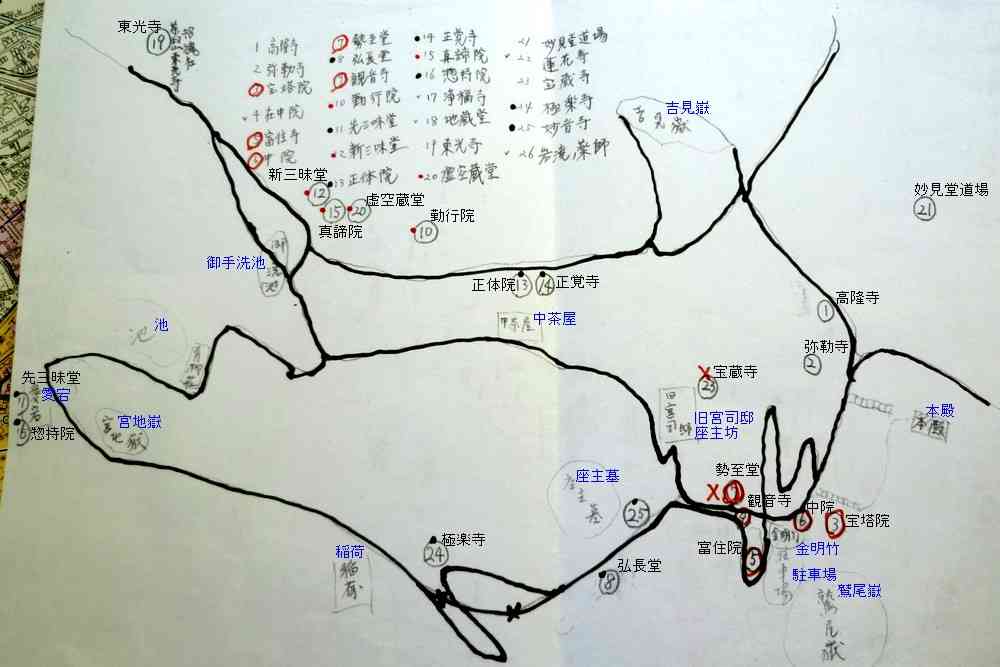 東光寺
19
1 高隆寺
2 弥勒寺
3 宝塔院
4 在中院
5 富住寺
6 中院
7 勢至堂
8 弘長堂
9 観音寺
10 勤行院
11 先三昧堂
12 新三昧堂
13 正体院
14 正覚寺
15 真諦院
16 惣持院
17 浄福寺
18 地蔵堂
19 東光寺
20 虚空蔵堂
21 妙見堂道場
22 蓮花寺
23 宝蔵寺
24 極楽寺
25 妙音寺
26 岩滝薬師
吉見嶽
吉見嶽
新三昧堂
12
15
20
虚空蔵堂
真諦院
勤行院
10
妙見堂道場
21
御手洗池
御手洗池
正体院
13
14
正覚寺
中茶屋
中茶屋
高隆寺
1
弥勒寺
2
池
池
宝蔵寺
23
先三昧堂
愛宕
愛宕
惣持院
宮地嶽
宮地嶽
旧宮司邸
旧宮司邸
座主坊
本殿
本殿
座主墓
座主墓
25
勢至堂
7
観音寺
9
中院
6
3
宝塔院
富住院
5
金明竹
金明竹
駐車場
駐車場
鷲尾嶽
鷲尾嶽
稲荷
稲荷
極楽寺
24
弘長堂
8